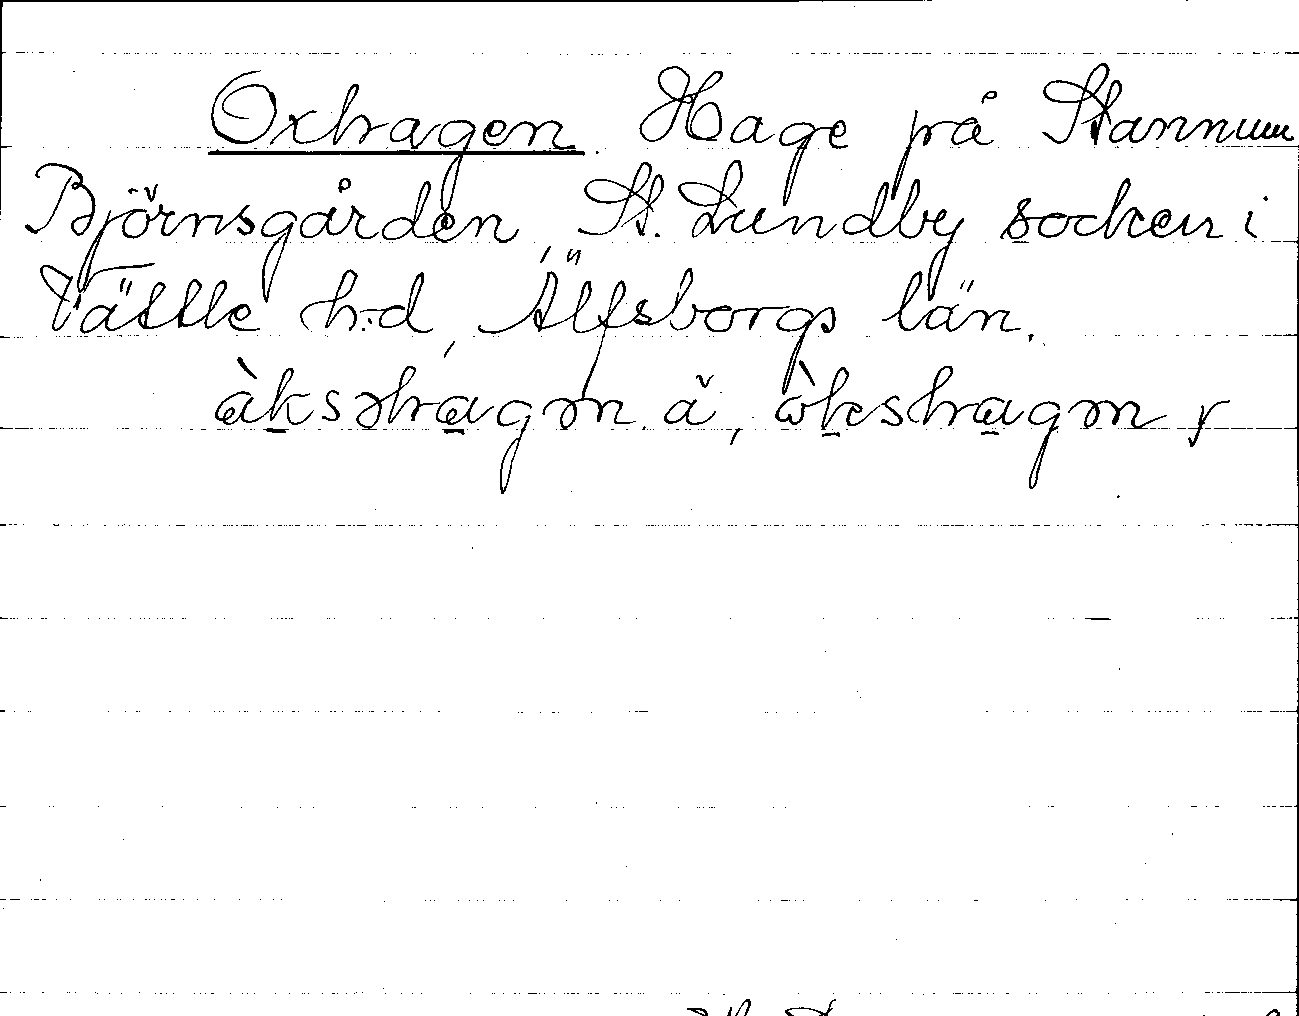 Oxhagen. Hage på Stannum
Björnsgården, St. Lundby socken i
Vättle h:d, Älfsborgs län.
àksəhagən. ä, òkshagən y